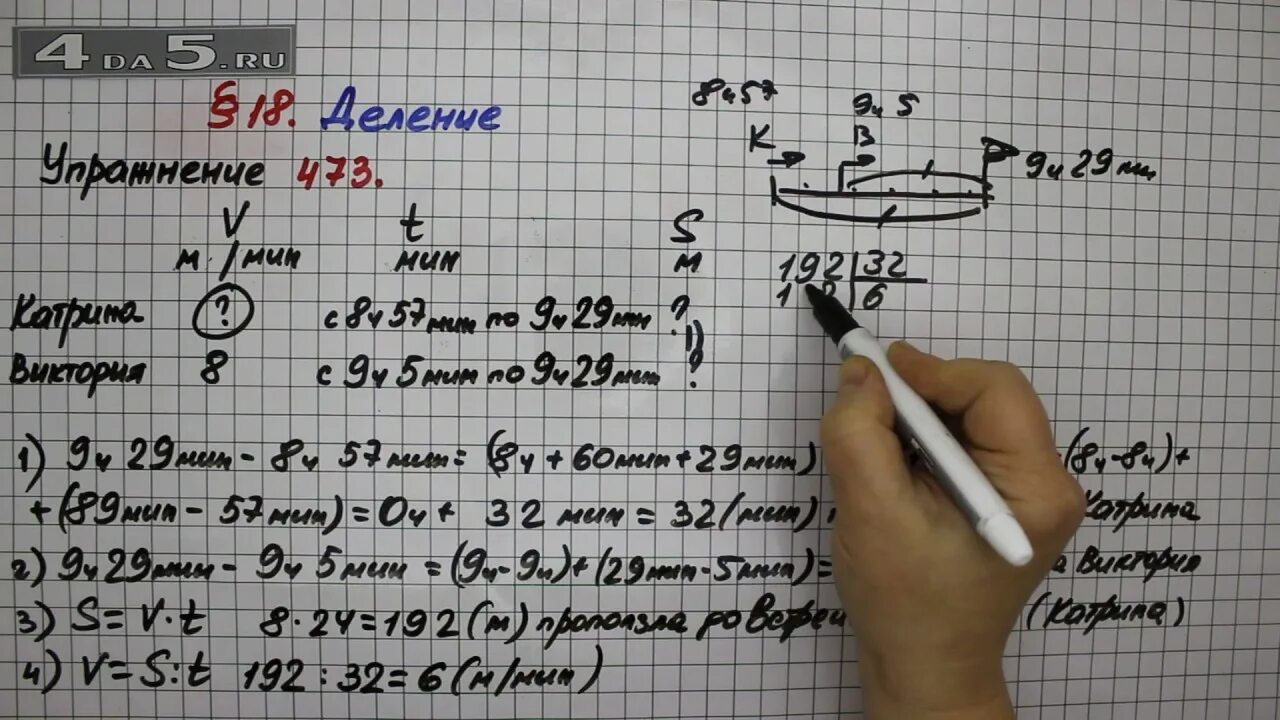 4DA5.RU
§18. Деление
Упражнение 473.
V t S
м/мин мин м
Катрина ? с 8ч57мин по 9ч29мин ?
Виктория 8 с 9ч5мин по 9ч29мин ?
8ч57
9ч5
К В
9ч29мин
192 32
6
1) 9ч29мин - 8ч57мин = (8ч + 60мин + 29мин) (8ч - 8ч) +
+ (89мин - 57мин) = 0ч + 32мин = 32(мин) Катрина
2) 9ч29мин - 9ч5мин = (9ч - 9ч) + (29мин - 5мин) = Виктория
3) S = V · t 8 · 24 = 192 (м) проползла до (Катрина)
4) V = S : t 192 : 32 = 6 (м/мин)